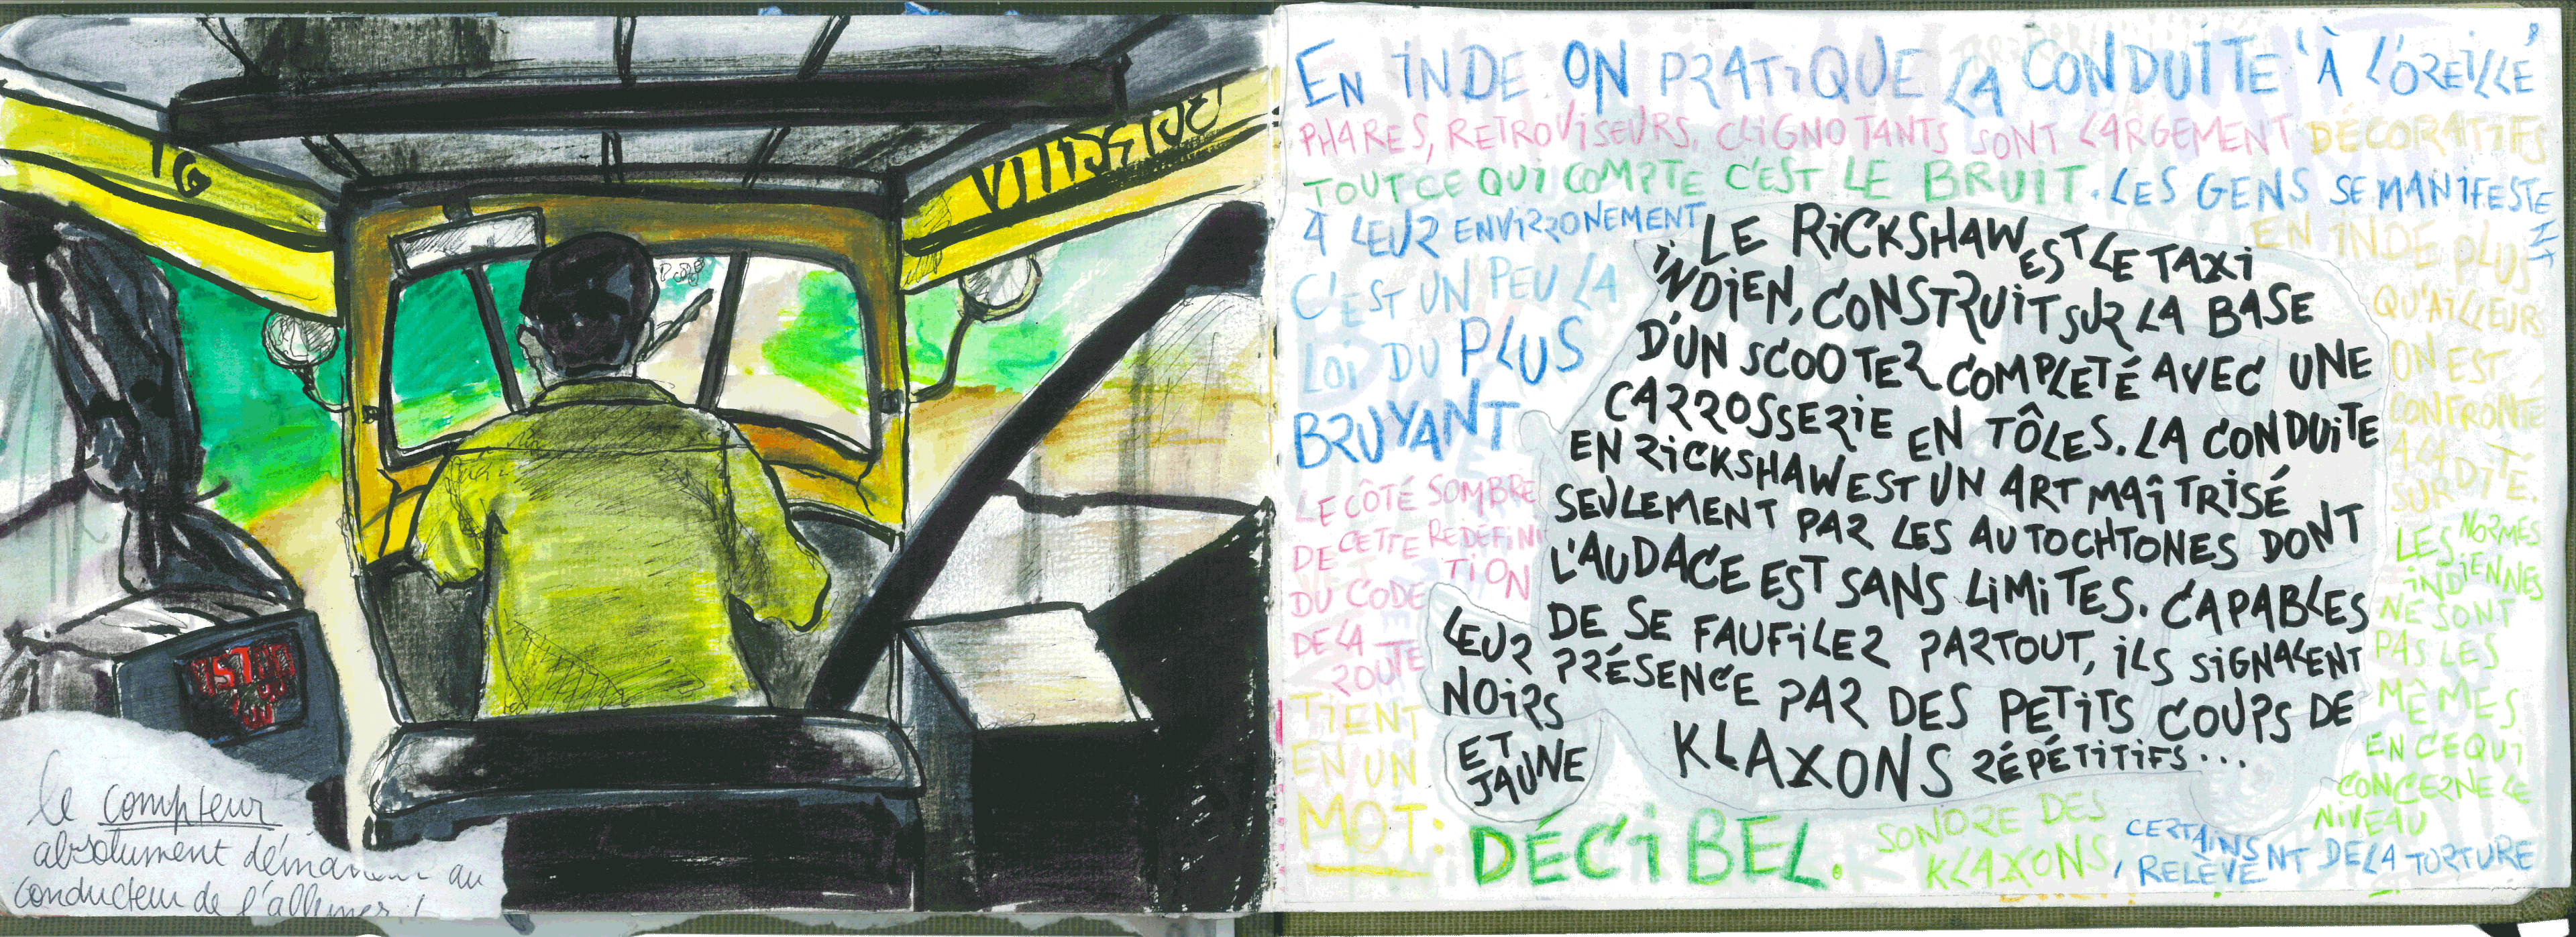 le compteur
absolument au
conducteur de l'allumer !
EN INDE ON PRATIQUE LA CONDUITE "À L'OREILLE"
PHARES, RETROVISEURS, CLIGNOTANTS SONT LARGEMENT DÉCORATIFS
TOUT CE QUI COMPTE C'EST LE BRUIT. LES GENS SE MANIFESTE
NT
À LEUR ENVIRRONEMENT
C'EST UN PEU LA
LOI DU PLUS
BRUYANT
LE CÔTÉ SOMBRE
DE CETTE REDÉFINI
TION
DU CODE
DE LA
ROUTE
TIENT
EN UN
MOT:
DÉCIBEL.
LE RICKSHAW EST LE TAXI
INDIEN, CONSTRUIT SUR LA BASE
D'UN SCOOTER COMPLETÉ AVEC UNE
CARROSSERIE EN TÔLES. LA CONDUITE
EN RICKSHAW EST UN ART MAÎTRISÉ
SEULEMENT PAR LES AUTOCHTONES DONT
L'AUDACE EST SANS LIMITES. CAPABLES
DE SE FAUFILER PARTOUT, ILS SIGNALENT
LEUR PRÉSENCE PAR DES PETITS COUPS DE
KLAXONS RÉPÉTITIFS...
NOIRS
ET
JAUNE
EN INDE PLUS
QU'AILLEURS
ON EST
CONFRONTÉ
À LA
SURDITÉ.
LES NORMES
INDIENNES
NE SONT
PAS LES
MÊMES
EN CE QUI
CONCERNE LE
NIVEAU
SONORE DES
KLAXONS,
CERTAINS
RELÈVENT DE LA TORTURE